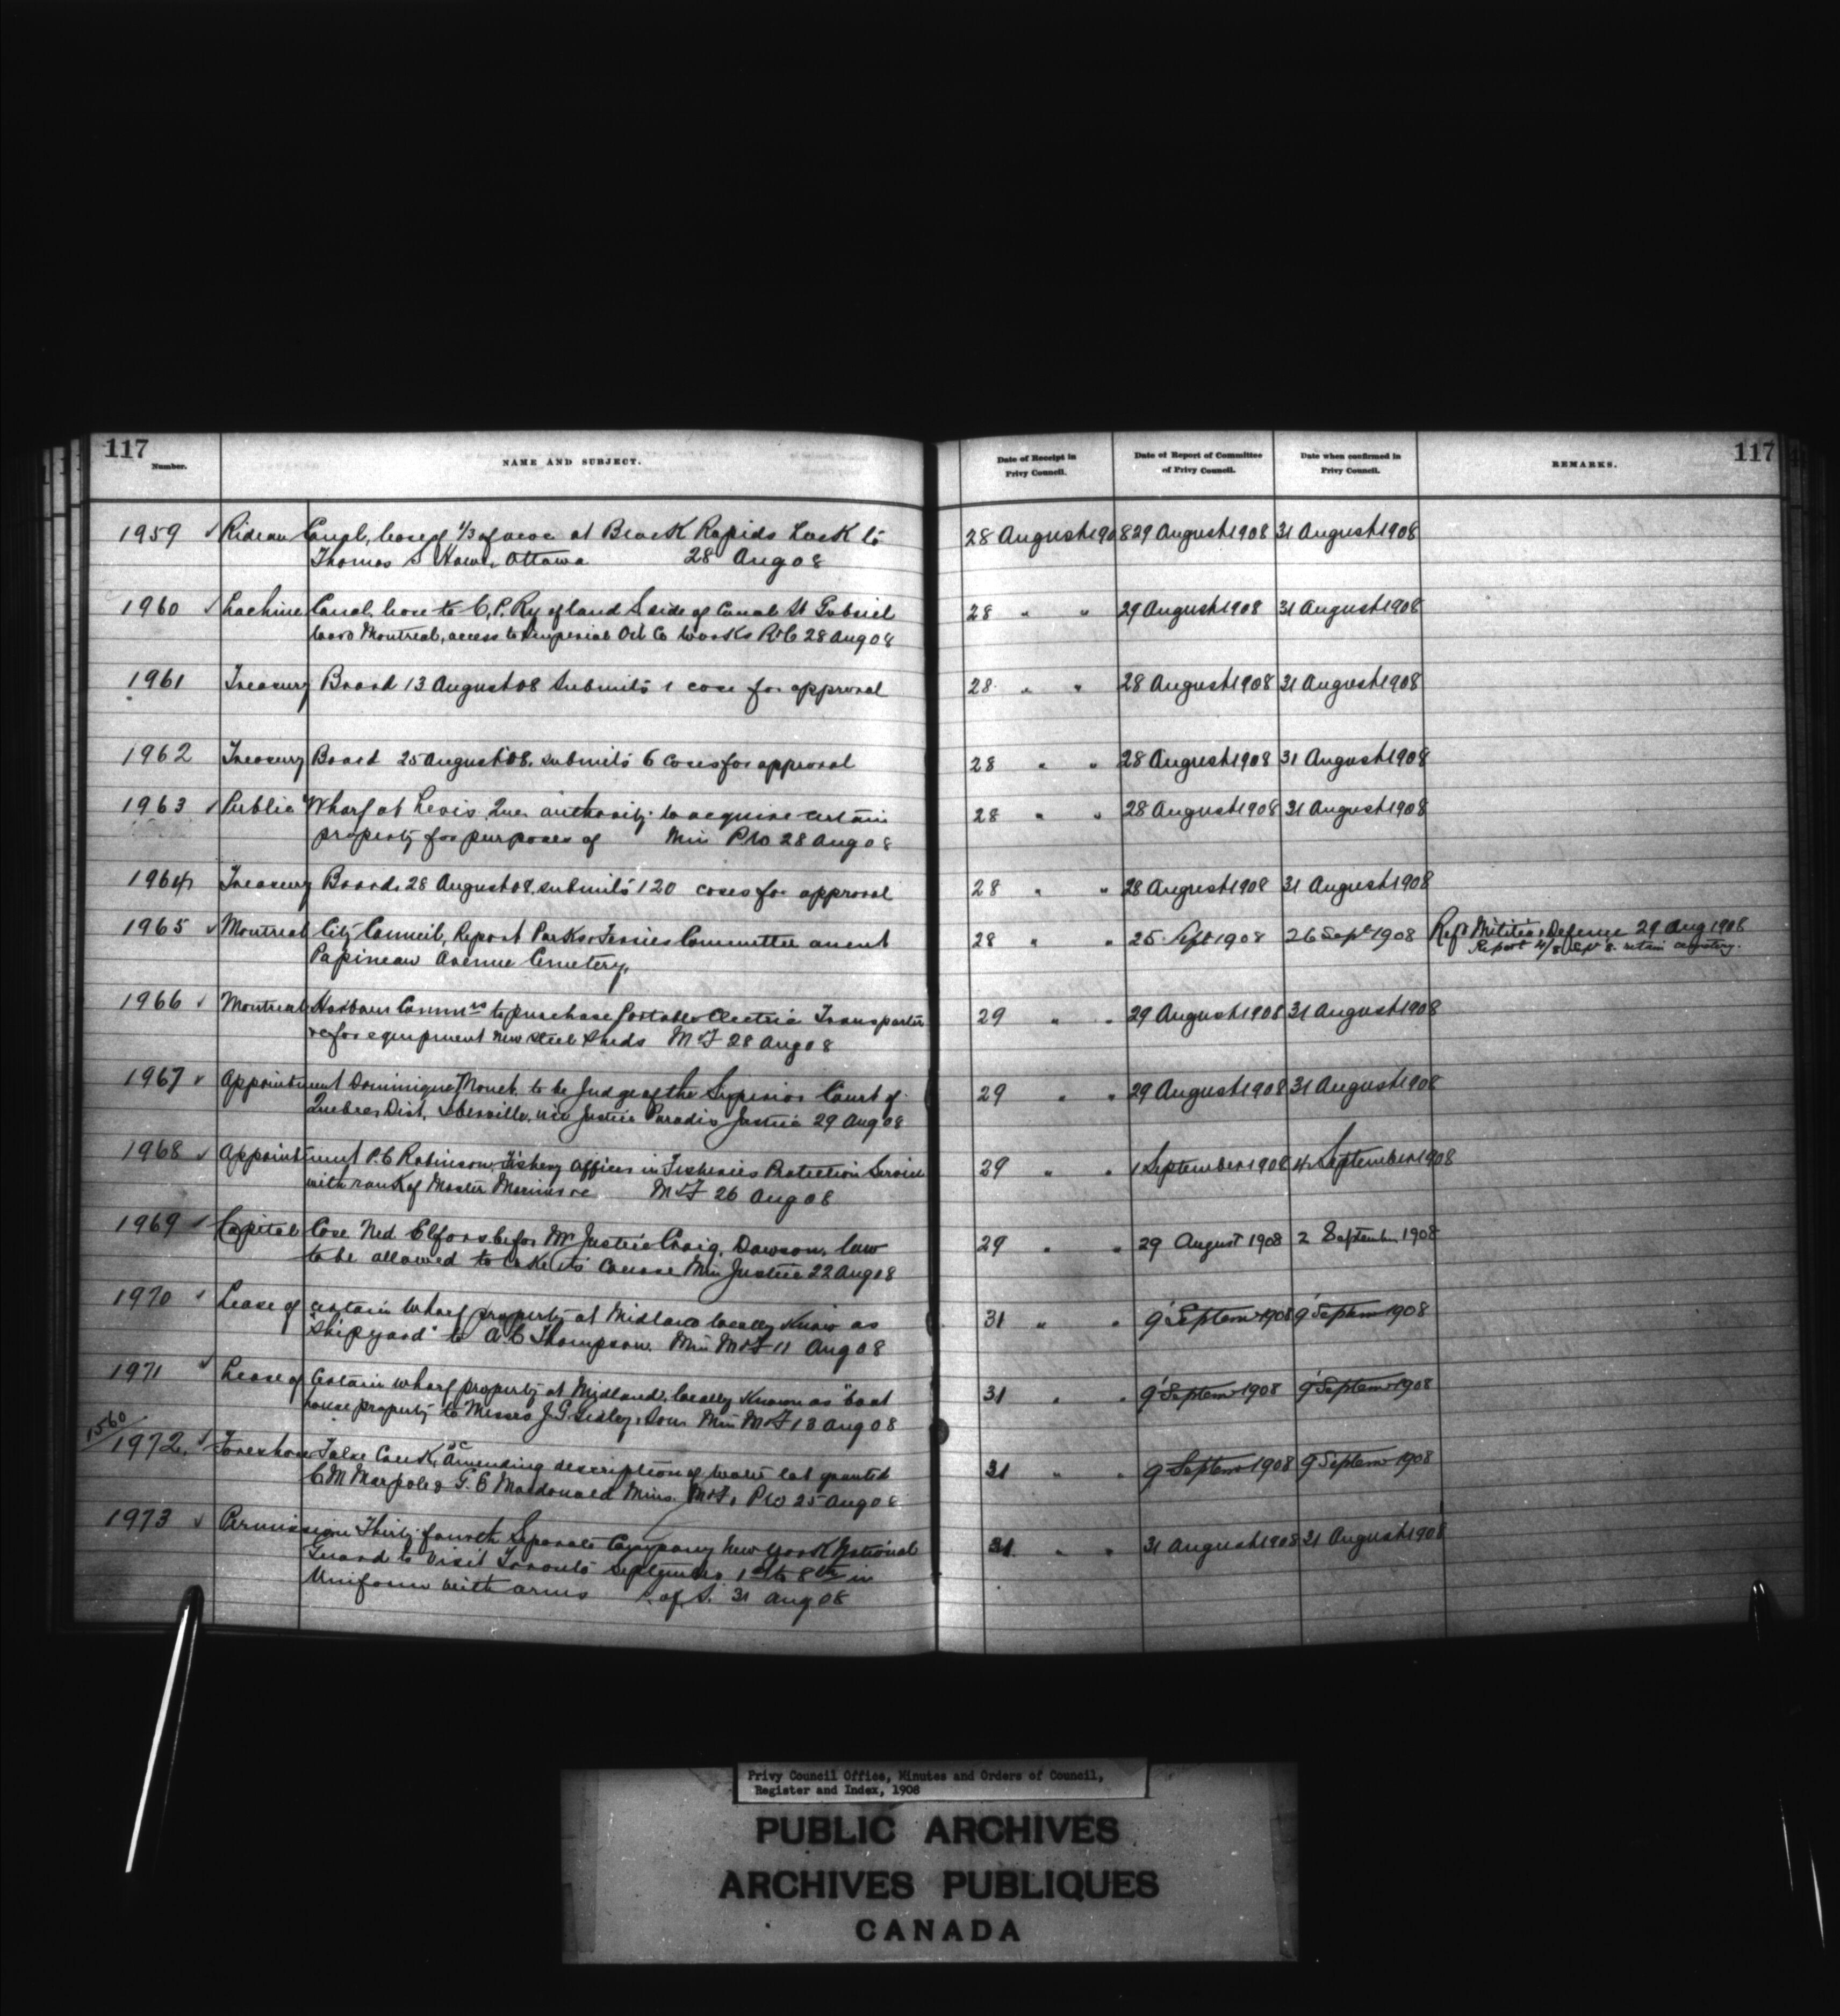 117
Number. NAME AND SUBJECT. Date of Receipt in Privy Council. Date of Report of Committee of Privy Council. Date when confirmed in Privy Council. REMARKS. 117
1959 Rideau Canal, lease of 1/3 of acre at Black Rapids Lock to 28 August 1908 29 August 1908 31 August 1908
Thomas S Ottawa 28 Aug 08
1960 Lachine Canal, lease to C.P. Ry of land S side of Canal St Gabriel 28 " " 29 August 1908 31 August 1908
Ward Montreal, access to Imperial Oil Co works R&C 28 Aug 08
1961 Treasury Board 13 August 08 Submits 1 case for approval 28 " " 28 August 1908 31 August 1908
1962 Treasury Board 25 August 08. submits 6 cases for approval 28 " " 28 August 1908 31 August 1908
1963 Public Wharf at Levis, Que. authority to acquire certain 28 " " 28 August 1908 31 August 1908
property for purposes of Min PW 28 Aug 08
1964 Treasury Board, 28 August 08, submits 120 cases for approval 28 " " 28 August 1908 31 August 1908
1965 Montreal City Council, Report Parks & Ferries Committee anent 28 " " 25 Sept 1908 26 Sept 1908 Ref'd Militia & Defence 29 Aug 1908
Papineau Avenue Cemetery, Report 4/8 Sept 8. retain cemetery.
1966 Montreal Harbour Commrs to purchase Portable Electric Transporter 29 " " 29 August 1908 31 August 1908
&c for equipment new steel Sheds M&F 28 Aug 08
1967 Appointment Dominique Monet to be Judge of the Superior Court of 29 " " 29 August 1908 31 August 1908
Quebec Dist, Iberville, vice Justice Paradis Justice 29 Aug 08
1968 Appointment P.C Robinson, Fishery Officer in Fisheries Protection Service 29 " " 1 September 1908 4 September 1908
with rank of Master Mariner &c M&F 26 Aug 08
1969 Capital Case Ned Elfors before Mr Justice Craig, Dawson, law 29 " " 29 August 1908 2 September 1908
to be allowed to take its course Min Justice 22 Aug 08
1970 Lease of certain wharf property at Midland locally know as 31 " " 9' Septem 1908 9' Septem 1908
"Shipyard" to A.C Thompson. Min M&F 11 Aug 08
1971 Lease of Certain wharf property at Midland, locally known as "boat 31 " " 9' Septem 1908 9' Septem 1908
house property to Messrs J.G & Son Min M&F 13 Aug 08
1560/1972 Foreshore False Creek, BC amending description of water lot granted 31 " " 9 Septem 1908 9 Septem 1908
C M Marpole & G. E Macdonald Mins. M&F, PW 25 Aug 08
1973 Permission Thirty-fourth Separate Company New York National 31 " " 31 August 1908 31 August 1908
Guard to visit Toronto September 1st to 8th in
Uniform with arms S. of S. 31 Aug 08
Privy Council Office, Minutes and Orders of Council,
Register and Index, 1908
PUBLIC ARCHIVES
ARCHIVES PUBLIQUES
CANADA